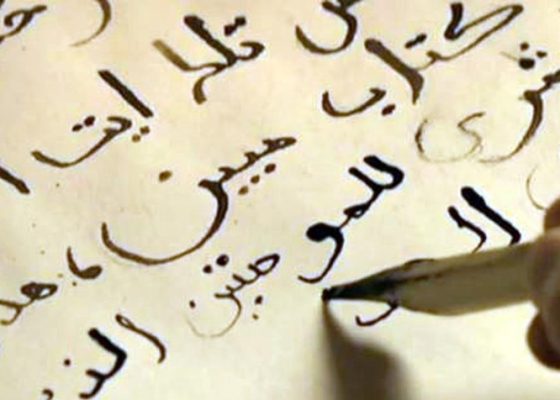 تلك ايت
كتاب مبين هد
شرى للمو منين الذ